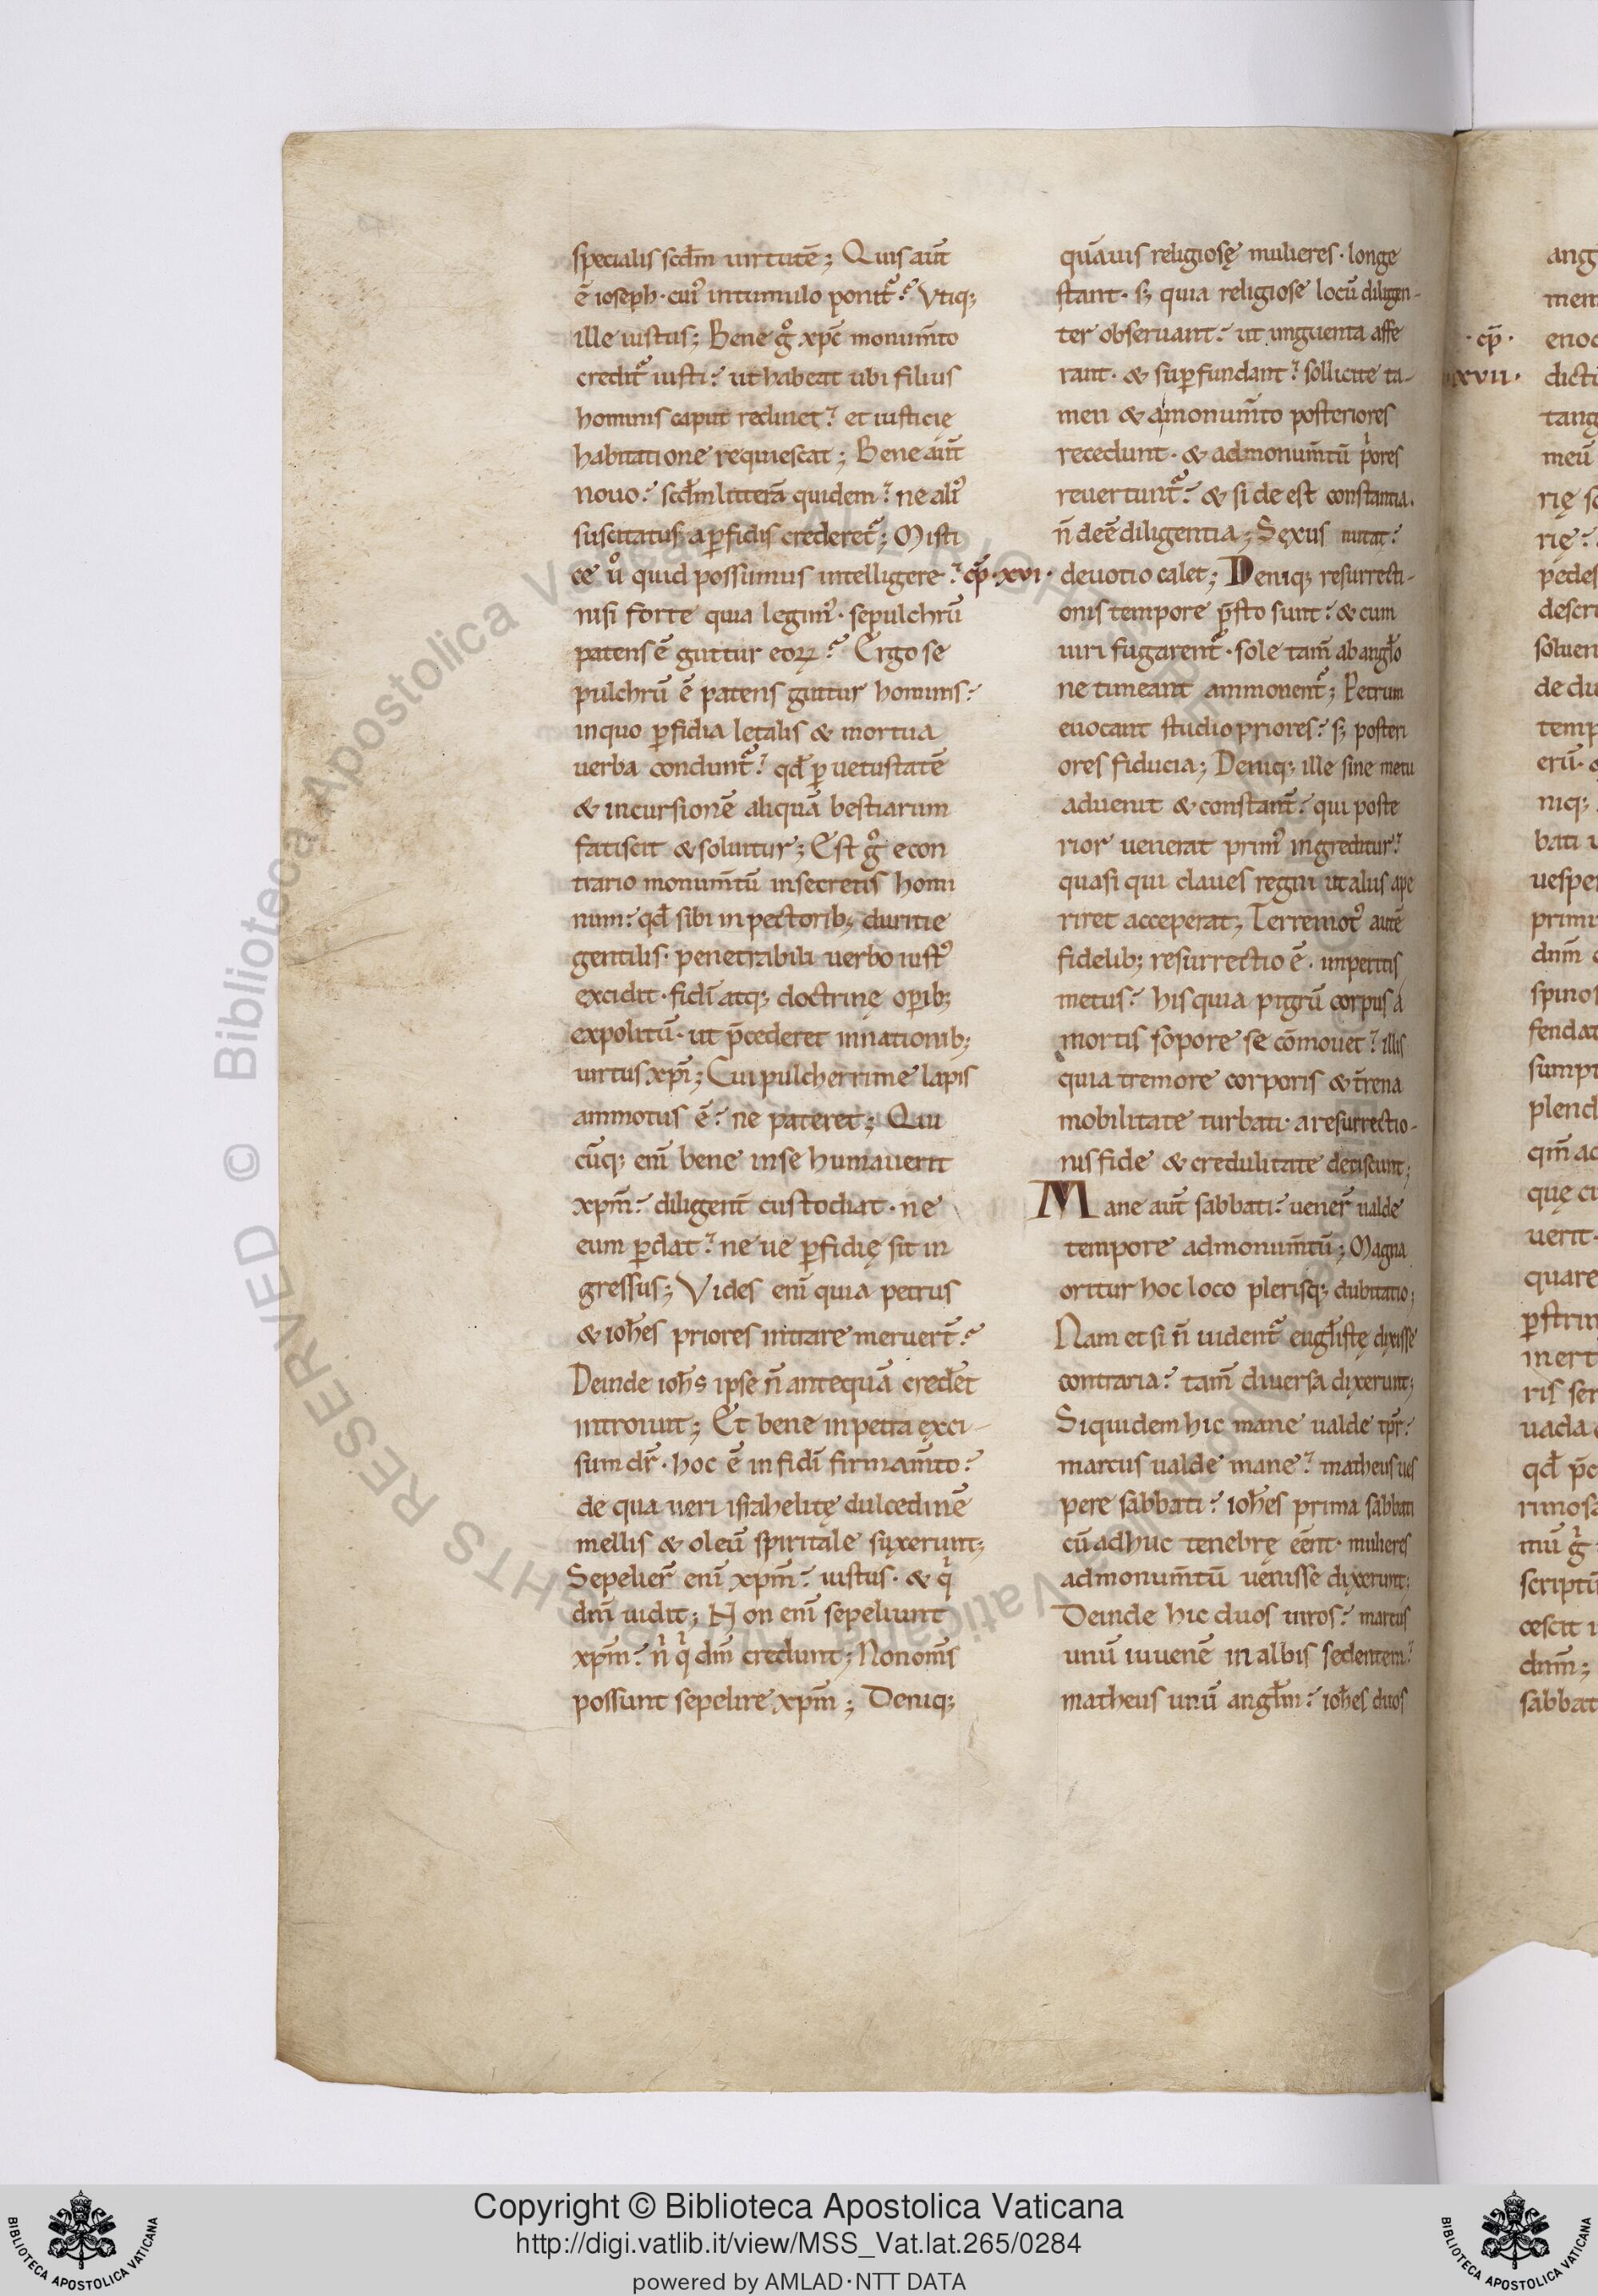 specialis scđm uirtutē; Quis aūt
ē ioseph· cui᷒ intumulo ponit᷑? Vtiq;
ille iustus; Bene gͦ xp̄c monum̄to
credit᷑ iusti? ut habeat ubi filius
hominis caput reclinet? et iusticię
habitatione requiescat; Bene aūt
nouo? scđm litterā quidem? ne ali᷒
suscitatus a ꝑfidis crederet᷑; Misti
ce uͦ quid possumus intelligere?
nisi forte quia legim᷒· sepulchrū
patens ē guttur eoꝝ? Ergo se
pulchrū ē patens guttur hominis?
inquo ꝑfidia letalis & mortua
uerba condunt᷑? qđ ꝑ uetustatē
& incursionē aliquā bestiarum
fatiscit & soluitur; Est gͦ econ
trario monum̄tū insecretis homi
num? qđ sibi in pectorib; duritie
gentilis· penetrabili uerbo iust᷒
excidit· fidī atq; doctrinę oꝑib;
expolitū· ut p̄cederet innationib;
uirtus xp̄i; Cui pulcherrime lapis
ammotus ē? ne pateret; Qui
cūq; enī bene inse humauerit
xpm̄? diligent̄ custodiat· ne
eum ꝑdat? ne ue ꝑfidię sit in
gressus; Vides enī quia petrus
& ioħes priores intrare meruert̄?
Deinde ioħs ipse n̄ antequā credet̄
introiuit; Et bene inpetra exci-
sum dr̄· hoc ē in fidī firmam̄to?
de qua ueri israhelitę dulcedinē
mellis & oleū spiritale suxerunt;
Sepelier̄ enī xpm̄? iustus· & qͥ
dm̄ uidit; Non enī sepeliunt
xpm̄? nͥ qͥ dm̄ credunt; Non om̄s
possunt sepelire xpm̄; Deniq;
quāuis religiosę mulieres· longe
stant· s; quia religiose locū diligen-
ter obseruant? ut unguenta affe
rant· & suꝑfundant? sollicite ta-
men & a monum̄to posteriores
recedunt· & admonum̄tū pͥores
reuertunt᷑? & si de est constantia·
n̄ deē diligentia; Sexus nutat?
cp̄·xvi· deuotio calet; Deniq; resurrecti-
onis tempore p̄sto sunt? & cum
uiri fugarent᷑· sole tam̄ ab angl̄o
ne timeant ammonent᷑; Petrum
euocant studio priores? s; posteri
ores fiducia; Deniq; ille sine metu
aduenit & constant̄? qui poste
rior uenerat prim᷒ ingreditur?
quasi qui claues regni ut aliis ape
riret acceperat; Terremot᷒ autē
fidelib; resurrectio ē· imperitis
metus? his quia pigrū corpus a
mortis sopore se cōmouet? illis
quia tremore corporis & t̄rena
mobilitate turbati· a resurrectio-
nis fide & credulitate desciscunt;
Mane aūt sabbati? uener̄ ualde
tempore admonum̄tū; Magna
oritur hoc loco plerisq; dubitatio;
Nam et si n̄ uident᷑ eugl̄istę dixisse
contraria? tam̄ diuersa dixerunt;
Siquidem hic mane ualde tp̄r?
marcus ualde mane? matheus ues
pere sabbati? ioħes prima sabbati
cū adhuc tenebrę eēnt· mulieres
admonum̄tū uenisse dixerunt;
Deinde hic duos uiros? marcus
unū iuuenē in albis sedentem?
matheus unū angl̄m? ioħes duos
·cp̄·
xvii·
ang
mem
enoc
dicti
tang
meū
rię se
rię?
pedes
descri
soluen
de du
temp
erū·
niq;
bati u
uesper
primi
dnm̄
spinos
fendat
sumpt
plend
qm̄ ac
quę cu
uerit·
quare
ꝑstrin
inert
ris ser
uacla
qđ p̄c
rimosa
mū gͥ
scriptū
cescit
dnm̄;
sabbat
© Biblioteca Apostolica Vaticana ALL RIGHTS RESERVED
Copyright © Biblioteca Apostolica Vaticana
http://digi.vatlib.it/view/MSS_Vat.lat.265/0284
powered by AMLAD·NTT DATA
BIBLIOTECA APOSTOLICA VATICANA
BIBLIOTECA APOSTOLICA VATICANA